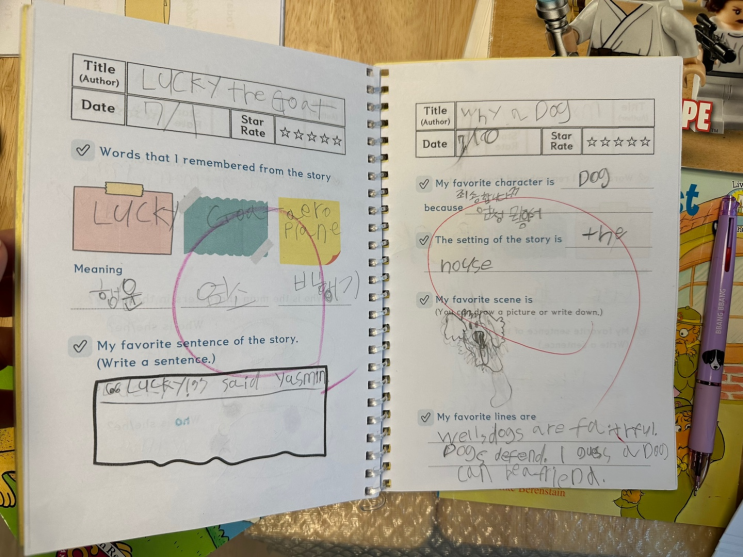 Title
(Author)
LUCKY the Goat
Date
7/1
Star
Rate
☆☆☆☆☆
Words that I remembered from the story
LUCKY
Goat
aero
Plane
Meaning
행운
염소
비행기
My favorite sentence of the story.
(Write a sentence.)
"Lucky!" said Yasmin
Title
(Author)
Why a Dog
Date
7/10
Star
Rate
☆☆☆☆☆
My favorite character is Dog
because
The setting of the story is the
house
My favorite scene is
(You can draw a picture or write down.)
My favorite lines are
Well, dogs are faithful.
Dogs defend. I guess a Dog
can be a friend.
PE
st
Berenstain